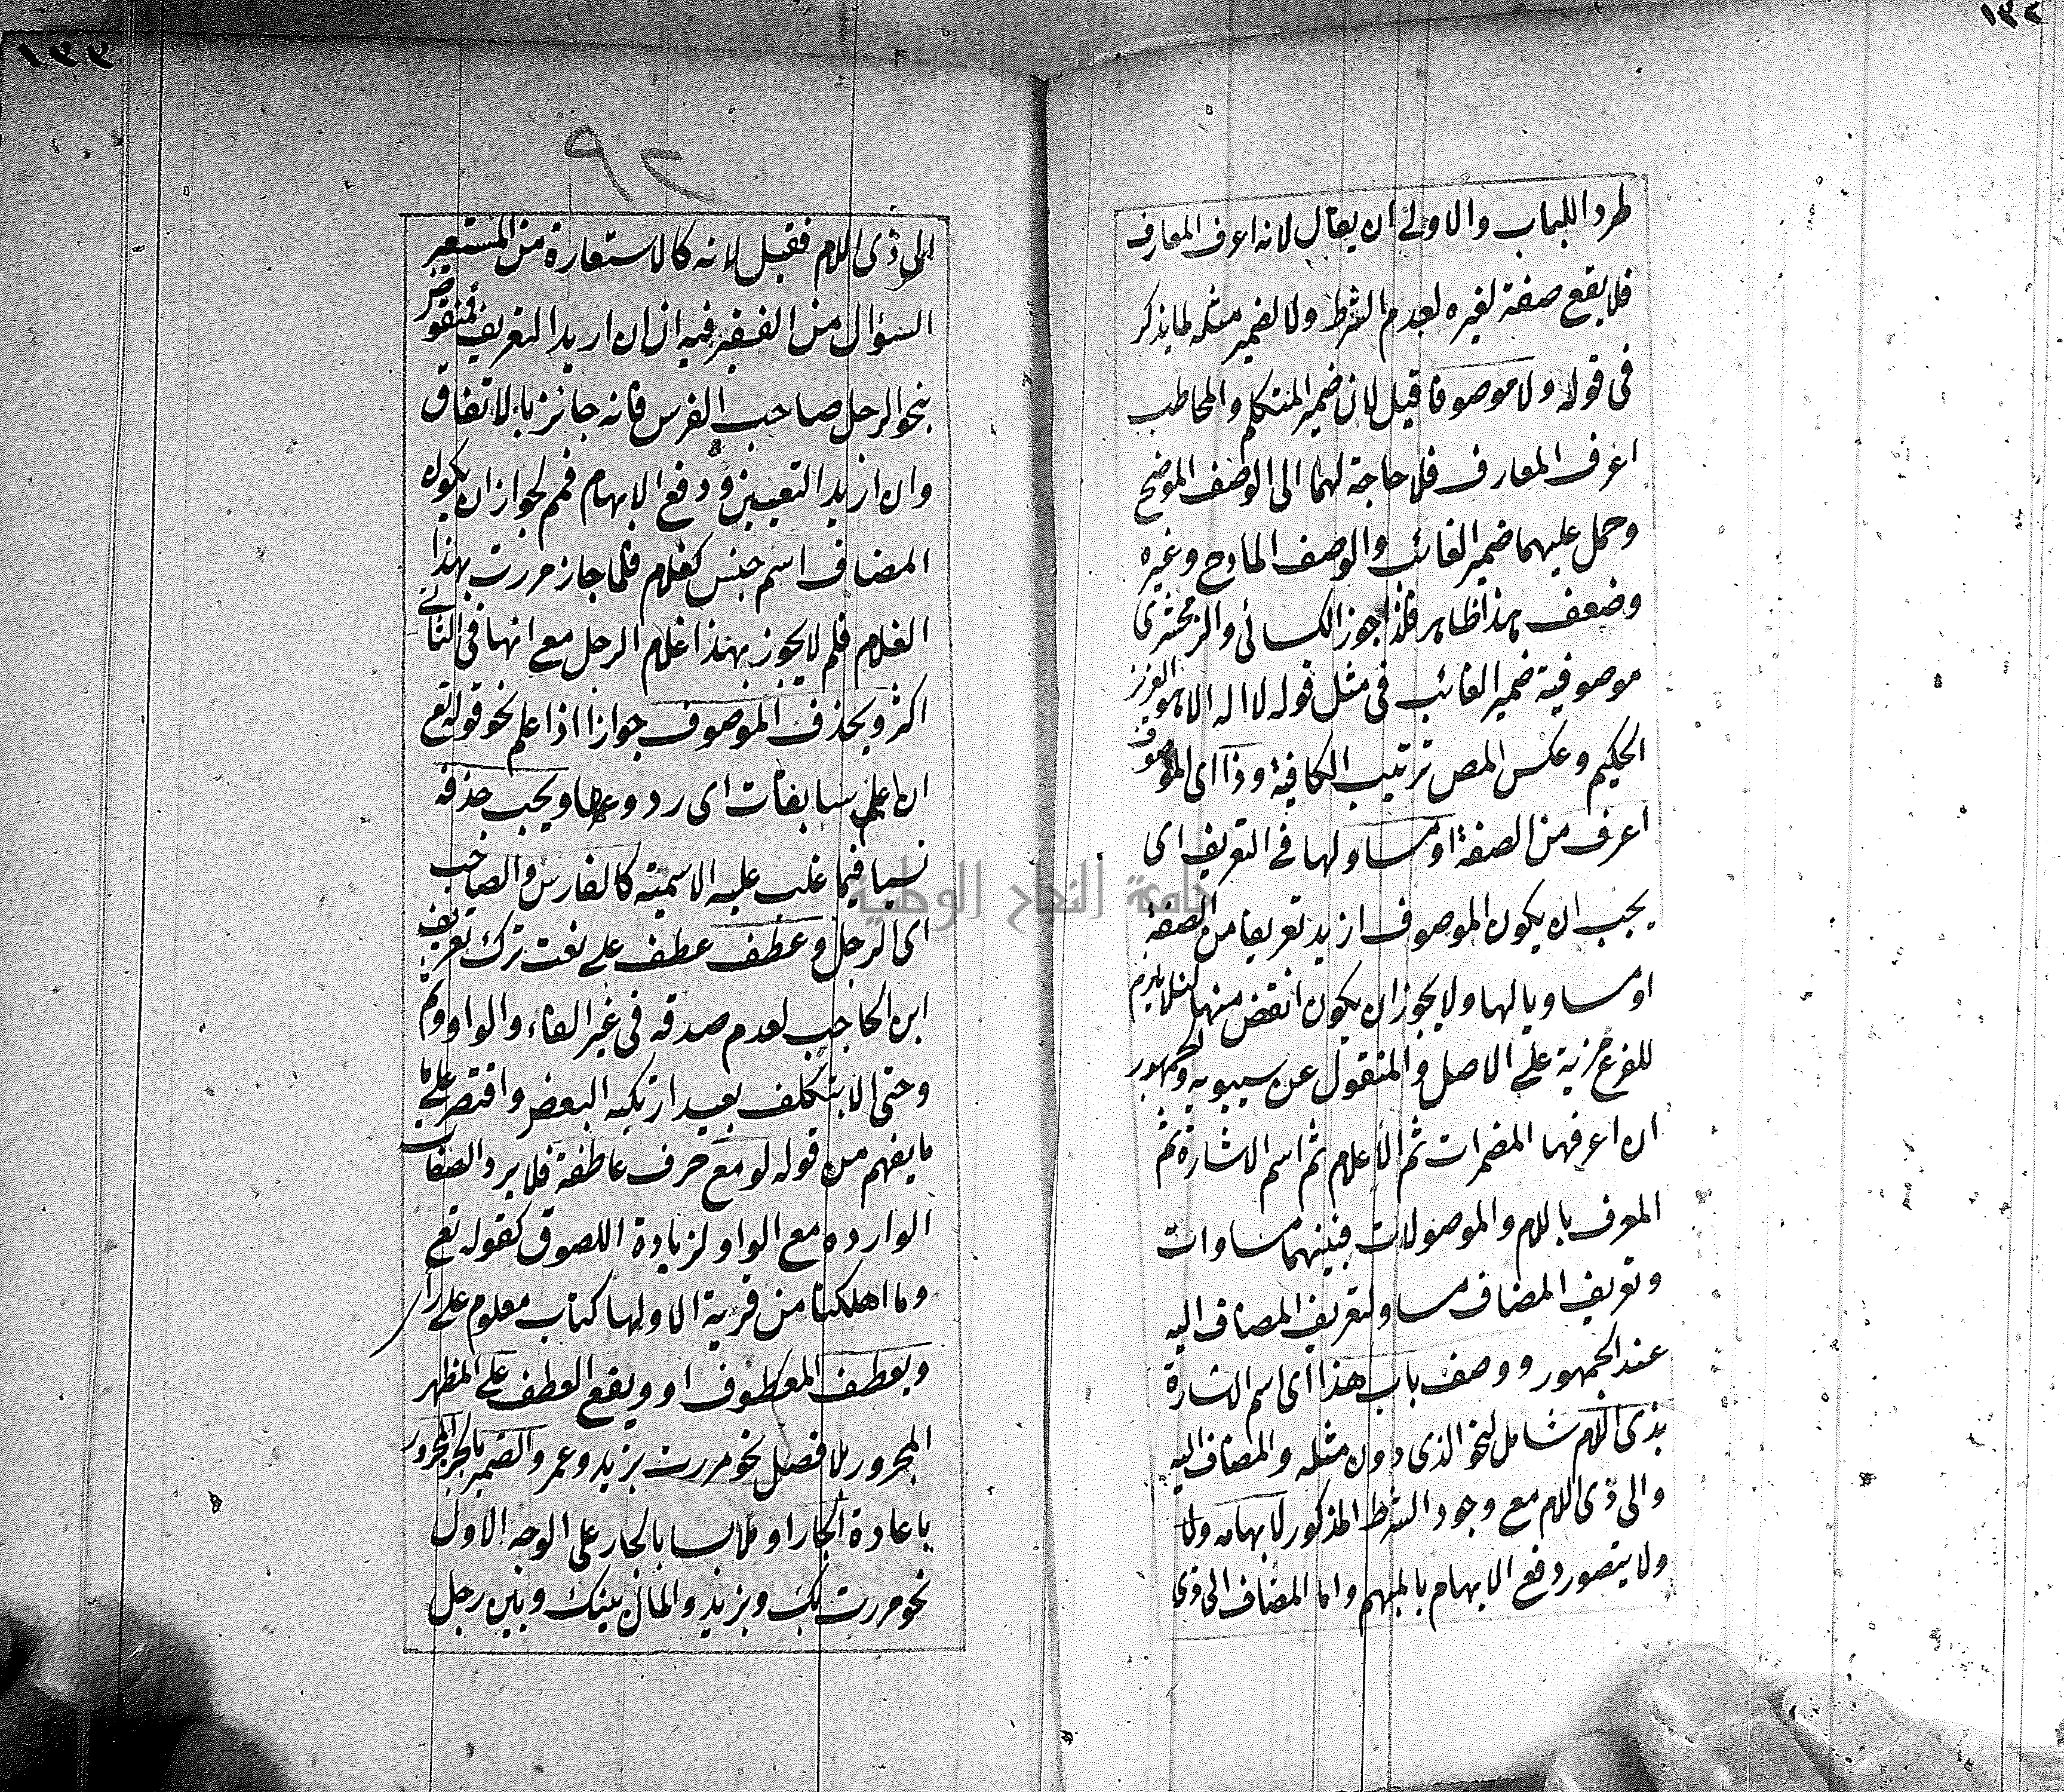 ١٣٢
طردا للباب والاولى ان يقال لانه اعرف المعارف
فلا يقع صفة لغيره لعدم الشرط ولا لضمير مثله لما يذكر
فى قوله ولا موصوفا قيل لان ضمير المتكلم والمخاطب
اعرف المعارف فلا حاجة لهما الى الوصف الموضح
وحمل عليهما ضمير الغائب والوصف المادح وغيره
وضعف هذا ظاهر فلذا جوز الكسائى والزمخشرى
موصوفية ضمير الغائب فى مثل قوله لا اله الا هو العزيز
الحكيم وعكس المص ترتيب الكافية وذا اى الموصوف
اعرف من الصفة او مساو لها فى التعريف اى
يجب ان يكون الموصوف ازيد تعريفا من الصفة
او مساويا لها ولا يجوز ان يكون انقض منها لئلا يلزم
للفرع مزية على الاصل والمنقول عن سيبويه والجمهور
ان اعرفها المضمرات ثم الاعلام ثم اسم الاشارة ثم
المعرف باللام والموصولات فبينهما مساوات
وتعريف المضاف مساو لتعريف المضاف اليه
عند الجمهور ووصف باب هذا اى اسم الاشارة
بذى اللام شامل لنحو الذى دون مثله والمضاف اليه
والى ذى اللام مع وجود الشرط المذكور لابهامه ولا
ولا يتصور دفع الابهام بالمبهم واما المضاف الى ذى
١٣٣
٩٢
الى ذى اللام فقيل لانه كالاستعارة من المستعير
السؤال من الفقير فيه ان ان اريد التعريف فمنقوض
بنحو الرجل صاحب الفرس فانه جائز بالاتفاق
وان اريد التعيين ودفع الابهام فمم لجواز ان يكون
المضاف اسم جنس كغلام فلما جاز مررت بهذا
الغلام فلم لا يجوز بهذا غلام الرجل مع انها فى الثانى
اكثر ويحذف الموصوف جوازا اذا علم نحو قوله تع
ان اعمل سابغات اى دروعا ويجب حذفه
نسيا فيما غلب عليه الاسمية كالفارس والصاحب
اى الرجل وعطف عطف على نعت ترك تعريف
ابن الحاجب لعدم صدقه فى غير الفاء والواو وثم
وحتى الا بتكلف بعيد ارتكبه البعض واقتصر على ما
ما يفهم من قوله لو مع حرف عاطفة فلا يرد الصفات
الوارده مع الواو لزيادة اللصوق كقوله تع
وما اهلكنا من قرية الا ولها كتاب معلوم على رأ
ويعطف المعطوف او ويقع العطف على المظهر
المجرور بلا فصل نحو مررت بزيد وعمرو والضمير بالجر المجرور
باعادة الجار او ملابسا بالجار على الوجه الاول
نحو مررت بك وبزيد والمال بينك وبين رجل
جامعة النجاح الوطنية